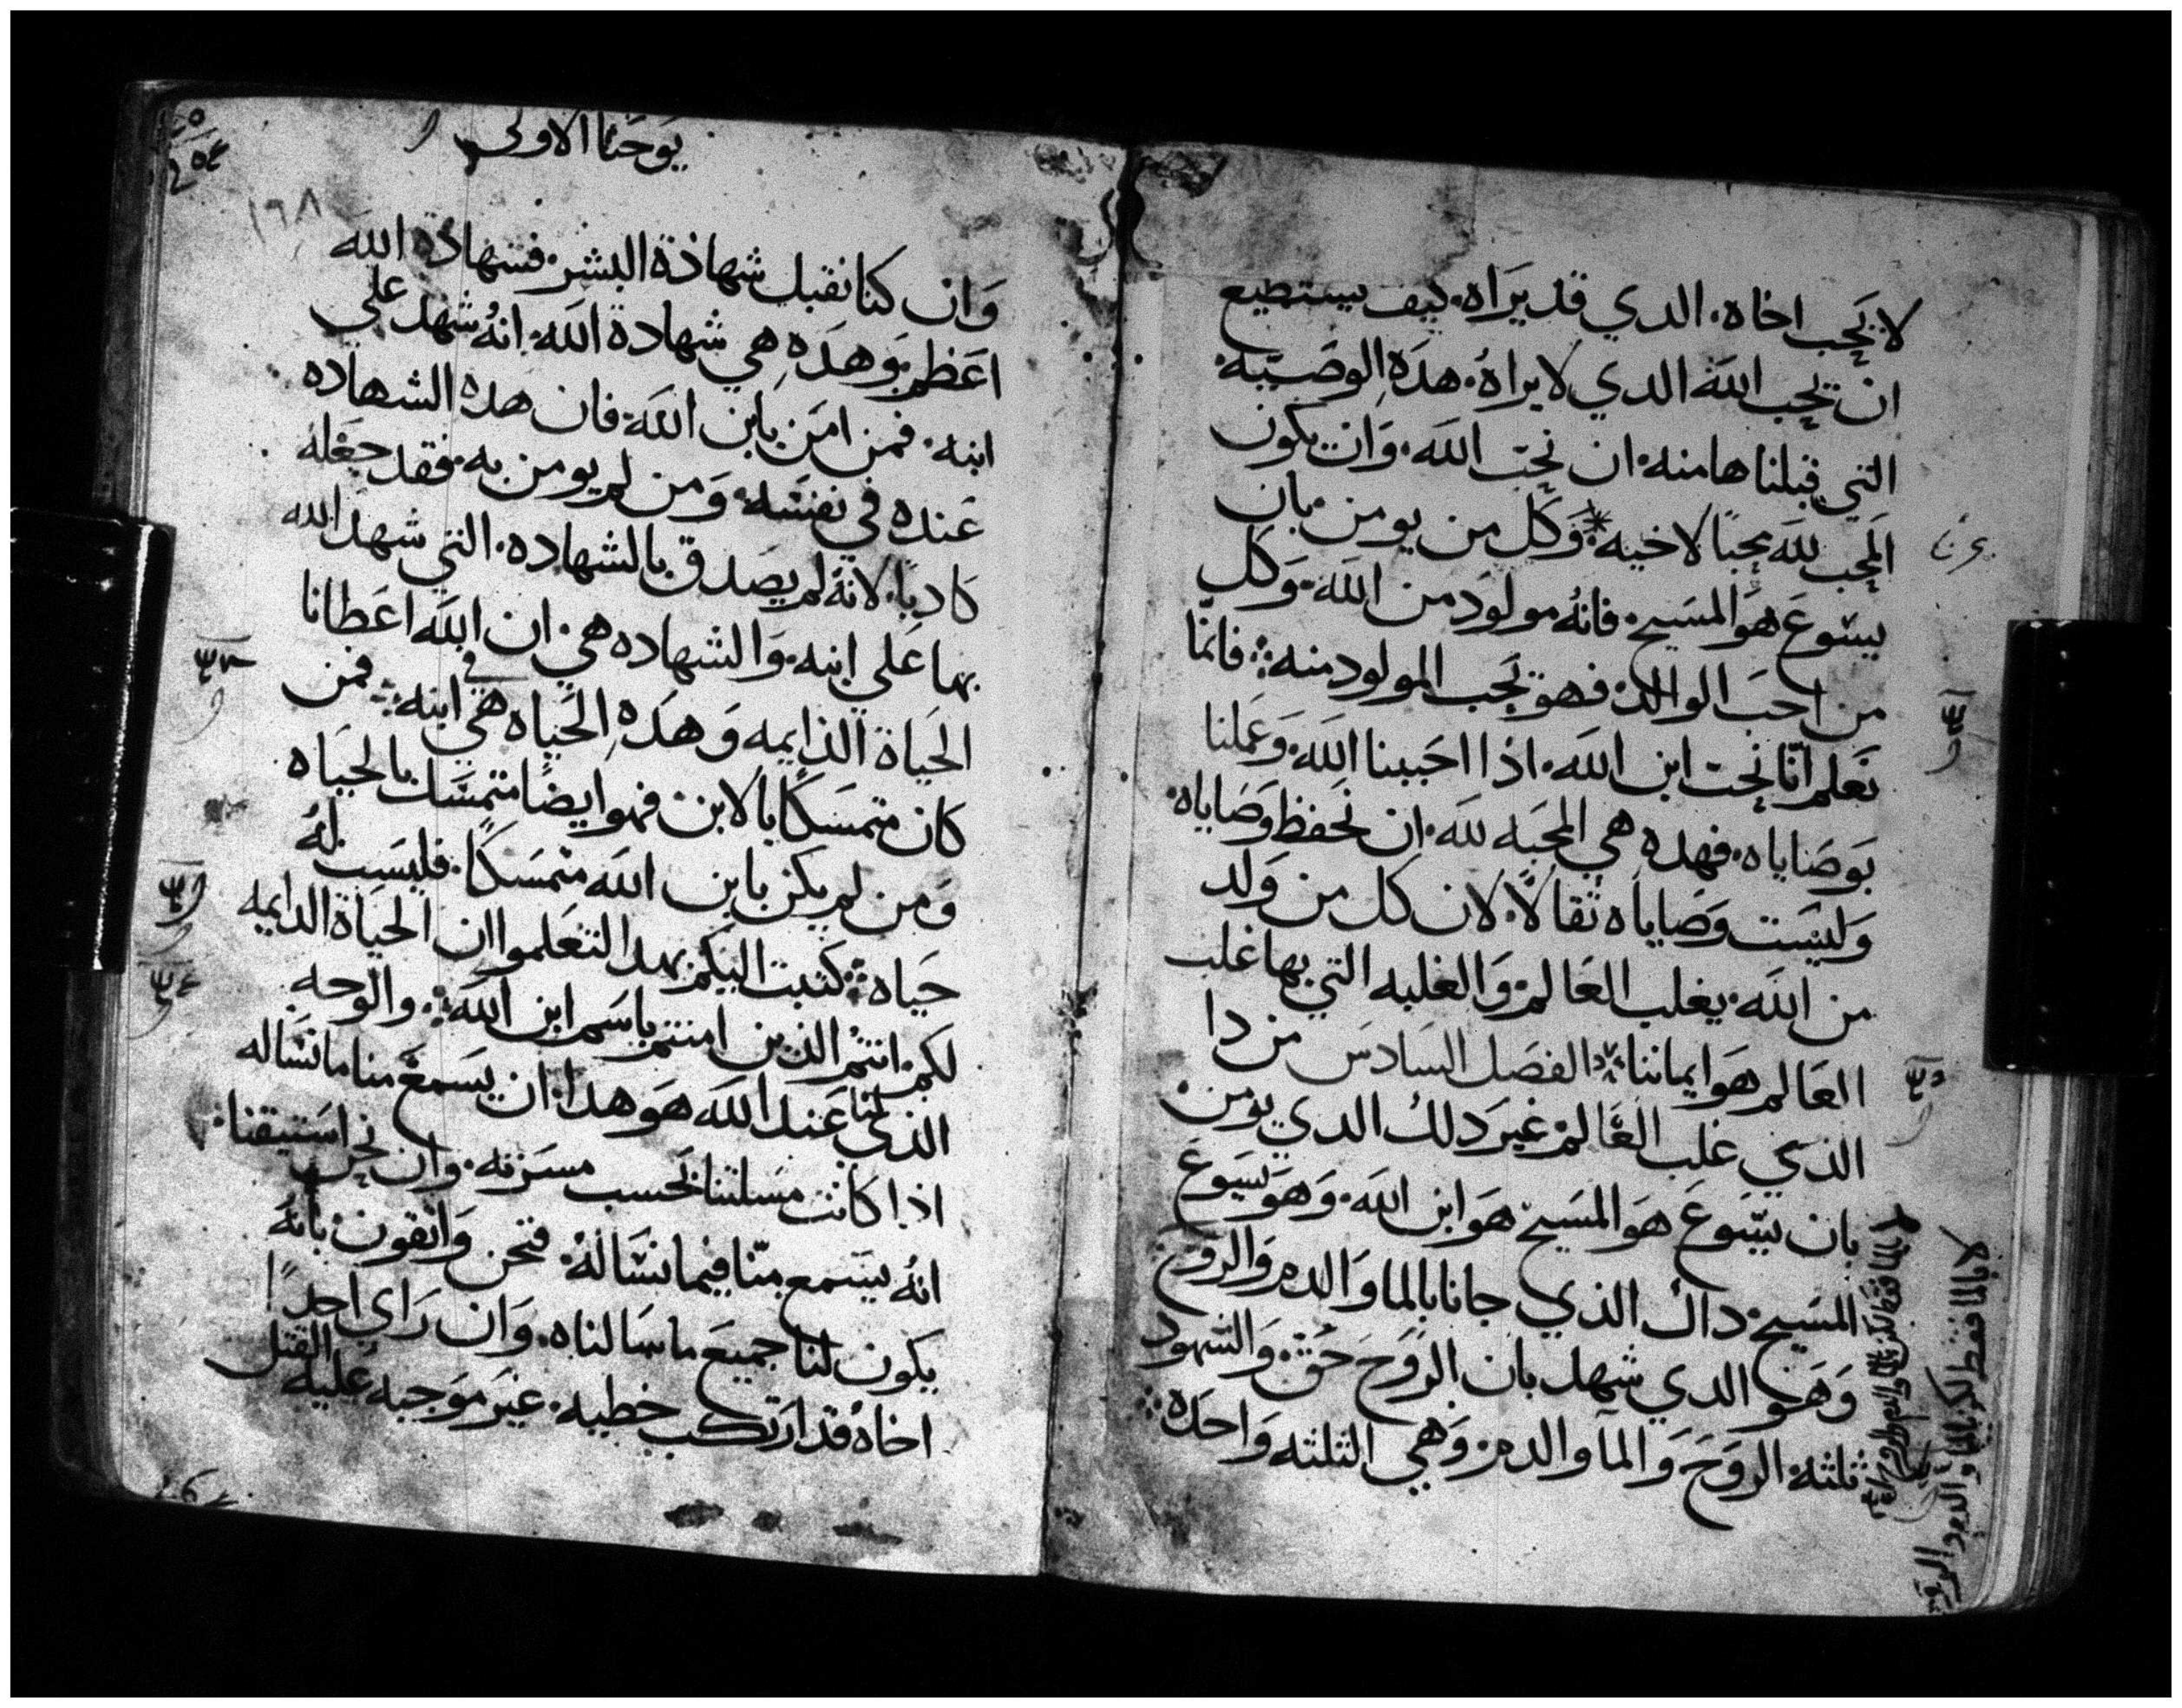 لا يحب اخاه. الدي قد يراه. كيف يستطيع
ان يحب الله الدي لا يراه. هده الوصيه
التي قبلناها منه. ان نحب الله. وان يكون
المحب لله محبًا لاخيه. وكل من يومن بان
يسوع هو المسيح. فانه مولود من الله. وكل
من احب الوالد. فهو يحب المولود منه. فانما
نعلم انا نحب ابن الله. اذا احببنا الله. وعملنا
بوصاياه. فهده هي المحبه لله. ان نحفظ وصاياه.
وليست وصاياه ثقالًا. لان كل من ولد
من الله. يغلب العالم. والغلبه التي بها غلب
العالم هو ايماننا الفصل السادس من دا
الذي غلب العالم. غير دلك الدي يومن.
بان يسوع هو المسيح هو ابن الله. وهو يسوع
المسيح. داك الذي جانا بالما والدم والروح
وهو الدي شهد بان الروح حق. والشهود
ثلثه. الروح والما والدم. وهي الثلثه واحده
لا بالما فقط لكن بالما والدم والروح
يوحنا الاولى
١٩٨
وان كنا نقبل شهادة البشر. فشهادة الله
اعظم. وهده هي شهادة الله. انه شهد علي
ابنه. فمن امن بابن الله. فان هده الشهاده
عنده في نفسه. ومن لم يومن به. فقد جعله
كادبًا. لانه لم يصدق بالشهاده. التي شهد الله
بها علي ابنه. والشهاده هي. ان الله اعطانا
الحياة الدايمه وهده الحياه هي في ابنه. فمن
كان متمسكًا بالابن فهو ايضًا متمسك بالحياه
ومن لم يكن بابن الله متمسكًا. فليست له
حياه. كتبت اليكم بهدا لتعلموا ان الحياة الدايمه
لكم. انتم الذين امنتم باسم ابن الله. والوجه
الذي لنا عند الله هو هدا. ان يسمع منا ما نساله
اذا كانت مسلتنا بحسب مسرته. وان نحن استيقنا.
انه يسمع منا فيما نساله. فنحن واثقون بانه
يكون لنا جميع ما سالناه. وان راي احدًا
اخاه قد ارتكب خطيه. غير موجبه عليه القتل